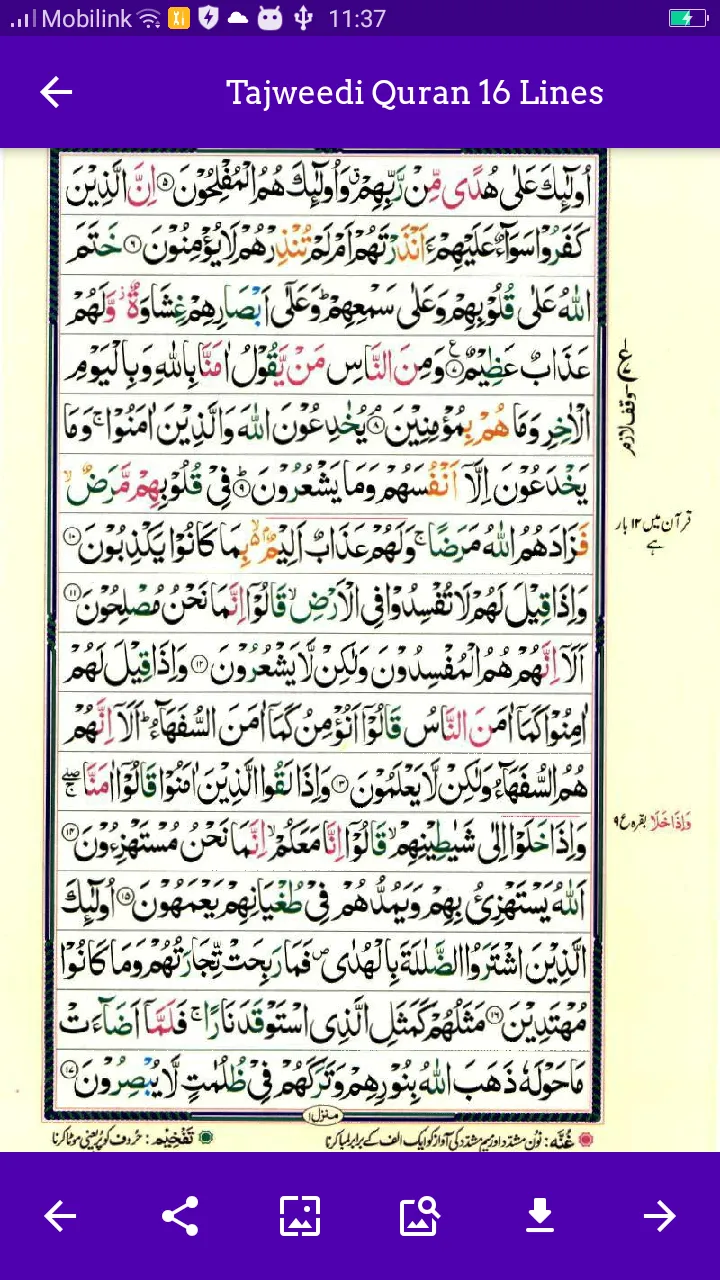 Mobilink 11:37
Tajweedi Quran 16 Lines
اُولٰٓئِكَ عَلٰى هُدًى مِّنْ رَّبِّهِمْ ۗ وَاُولٰٓئِكَ هُمُ الْمُفْلِحُوْنَ ۝۵ اِنَّ الَّذِيْنَ
كَفَرُوْا سَوَآءٌ عَلَيْهِمْ ءَاَنْذَرْتَهُمْ اَمْ لَمْ تُنْذِرْهُمْ لَا يُؤْمِنُوْنَ ۝۶ خَتَمَ
اللّٰهُ عَلٰى قُلُوْبِهِمْ وَعَلٰى سَمْعِهِمْ ؕ وَعَلٰٓى اَبْصَارِهِمْ غِشَاوَةٌ ۚ وَّلَهُمْ
عَذَابٌ عَظِيْمٌ ۝۷ وَمِنَ النَّاسِ مَنْ يَّقُوْلُ اٰمَنَّا بِاللّٰهِ وَبِالْيَوْمِ
الْاٰخِرِ وَمَا هُمْ بِمُؤْمِنِيْنَ ۝۸ يُخٰدِعُوْنَ اللّٰهَ وَالَّذِيْنَ اٰمَنُوْا ۚ وَمَا
يَخْدَعُوْنَ اِلَّاۤ اَنْفُسَهُمْ وَمَا يَشْعُرُوْنَ ۝۹ فِيْ قُلُوْبِهِمْ مَّرَضٌ ۙ
فَزَادَهُمُ اللّٰهُ مَرَضًا ۚ وَلَهُمْ عَذَابٌ اَلِيْمٌ ۢ ۙ بِمَا كَانُوْا يَكْذِبُوْنَ ۝۱۰
وَاِذَا قِيْلَ لَهُمْ لَا تُفْسِدُوْا فِي الْاَرْضِ ۙ قَالُوْۤا اِنَّمَا نَحْنُ مُصْلِحُوْنَ ۝۱۱
اَلَاۤ اِنَّهُمْ هُمُ الْمُفْسِدُوْنَ وَلٰكِنْ لَّا يَشْعُرُوْنَ ۝۱۲ وَاِذَا قِيْلَ لَهُمْ
اٰمِنُوْا كَمَاۤ اٰمَنَ النَّاسُ قَالُوْۤا اَنُؤْمِنُ كَمَاۤ اٰمَنَ السُّفَهَآءُ ؕ اَلَاۤ اِنَّهُمْ
هُمُ السُّفَهَآءُ وَلٰكِنْ لَّا يَعْلَمُوْنَ ۝۱۳ وَاِذَا لَقُوا الَّذِيْنَ اٰمَنُوْا قَالُوْۤا اٰمَنَّا ۖۚ
وَاِذَا خَلَوْا اِلٰى شَيٰطِيْنِهِمْ ۙ قَالُوْۤا اِنَّا مَعَكُمْ ۙ اِنَّمَا نَحْنُ مُسْتَهْزِءُوْنَ ۝۱۴
اَللّٰهُ يَسْتَهْزِئُ بِهِمْ وَيَمُدُّهُمْ فِيْ طُغْيَانِهِمْ يَعْمَهُوْنَ ۝۱۵ اُولٰٓئِكَ
الَّذِيْنَ اشْتَرَوُا الضَّلٰلَةَ بِالْهُدٰى ۪ فَمَا رَبِحَتْ تِّجَارَتُهُمْ وَمَا كَانُوْا
مُهْتَدِيْنَ ۝۱۶ مَثَلُهُمْ كَمَثَلِ الَّذِي اسْتَوْقَدَ نَارًا ۚ فَلَمَّاۤ اَضَآءَتْ
مَا حَوْلَهٗ ذَهَبَ اللّٰهُ بِنُوْرِهِمْ وَتَرَكَهُمْ فِيْ ظُلُمٰتٍ لَّا يُبْصِرُوْنَ ۝۱۷
ع
وقف لازم
قرآن میں ۱۲ بار
ہے
وَاِذَا خَلَا بقره ع ۹
منزل ۱
غُنَّه : نون مشدّد اور میم مشدّد کی آواز کو ایک الف کے برابر لمبا کرنا تَفْخِيْم : حُروف کو پُر یعنی موٹا کرنا